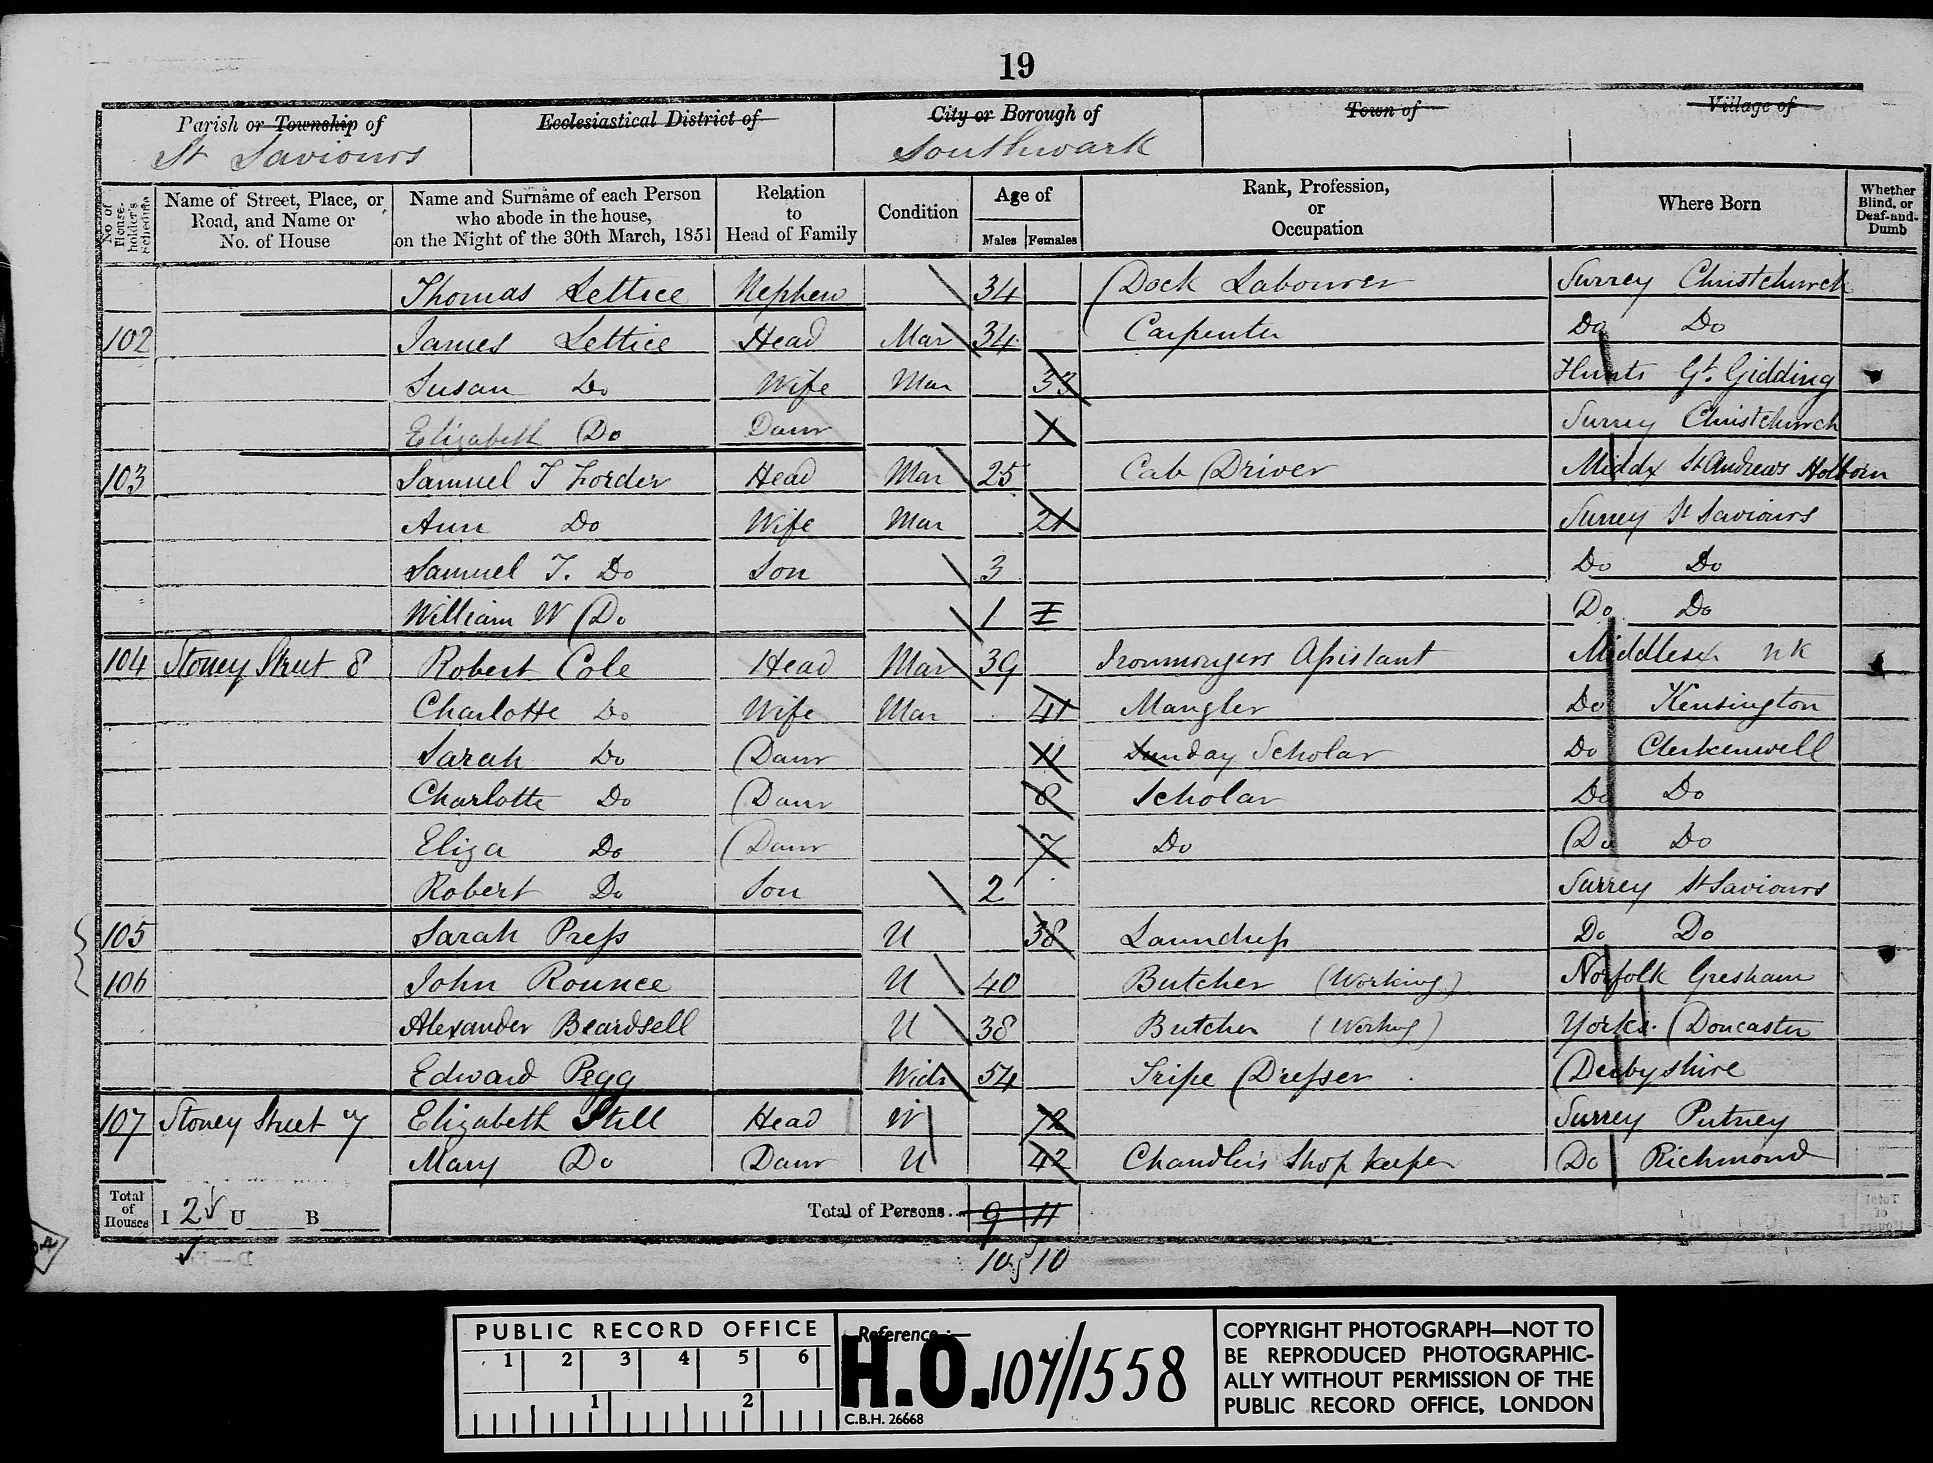 19
Parish or Township of
Ecclesiastical District of
City or Borough of
Town of
Village of
St Saviours
Southwark
No. of House-holder's Schedule
Name of Street, Place, or Road, and Name or No. of House
Name and Surname of each Person who abode in the house, on the Night of the 30th March, 1851
Relation to Head of Family
Condition
Age of
Males Females
Rank, Profession, or Occupation
Where Born
Whether Blind, or Deaf-and-Dumb
Thomas Lettice Nephew 34 Dock Labourer Surrey Christchurch
102 James Lettice Head Mar 34 Carpenter Do Do
Susan Do Wife Mar 33 Hunts Gt. Gidding
Elizabeth Do Daur 1 Surrey Christchurch
103 Samuel T Forder Head Mar 25 Cab Driver Middx St Andrews Holborn
Ann Do Wife Mar 21 Surrey St Saviours
Samuel T. Do Son 3 Do Do
William W Do 1 Do Do
104 Stoney Street 8 Robert Cole Head Mar 39 Ironmongers Assistant Middlesex NK
Charlotte Do Wife Mar 41 Mangler Do Kensington
Sarah Do Daur 11 Sunday Scholar Do Clerkenwell
Charlotte Do Daur 8 Scholar Do Do
Eliza Do Daur 7 Do Do Do
Robert Do Son 2 Surrey St Saviours
105 Sarah Press U 38 Laundress Do Do
106 John Rounce U 40 Butcher (Working) Norfolk Gresham
Alexander Beardsell U 38 Butcher (Working) Yorks. Doncaster
Edward Pegg Widr 54 Tripe Dresser Derbyshire
107 Stoney Street 7 Elizabeth Still Head W 72 Surrey Putney
Mary Do Daur U 42 Chandlers Shop keeper Do Richmond
Total of Houses I 2 U B
Total of Persons... 9 11
10 10
PUBLIC RECORD OFFICE
1 2 3 4 5 6
1 2
Reference:—
H.O. 107/1558
C.B.H. 26668
COPYRIGHT PHOTOGRAPH—NOT TO
BE REPRODUCED PHOTOGRAPHIC-
ALLY WITHOUT PERMISSION OF THE
PUBLIC RECORD OFFICE, LONDON